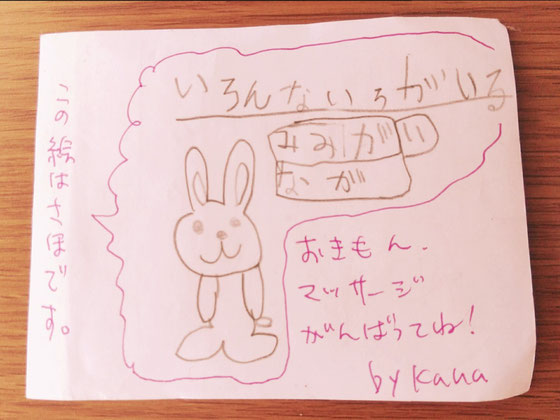 いろんないろがいる
みみがい
なが
この絵はさほです。
おきもん、
マッサージ
がんばってね!
by kana